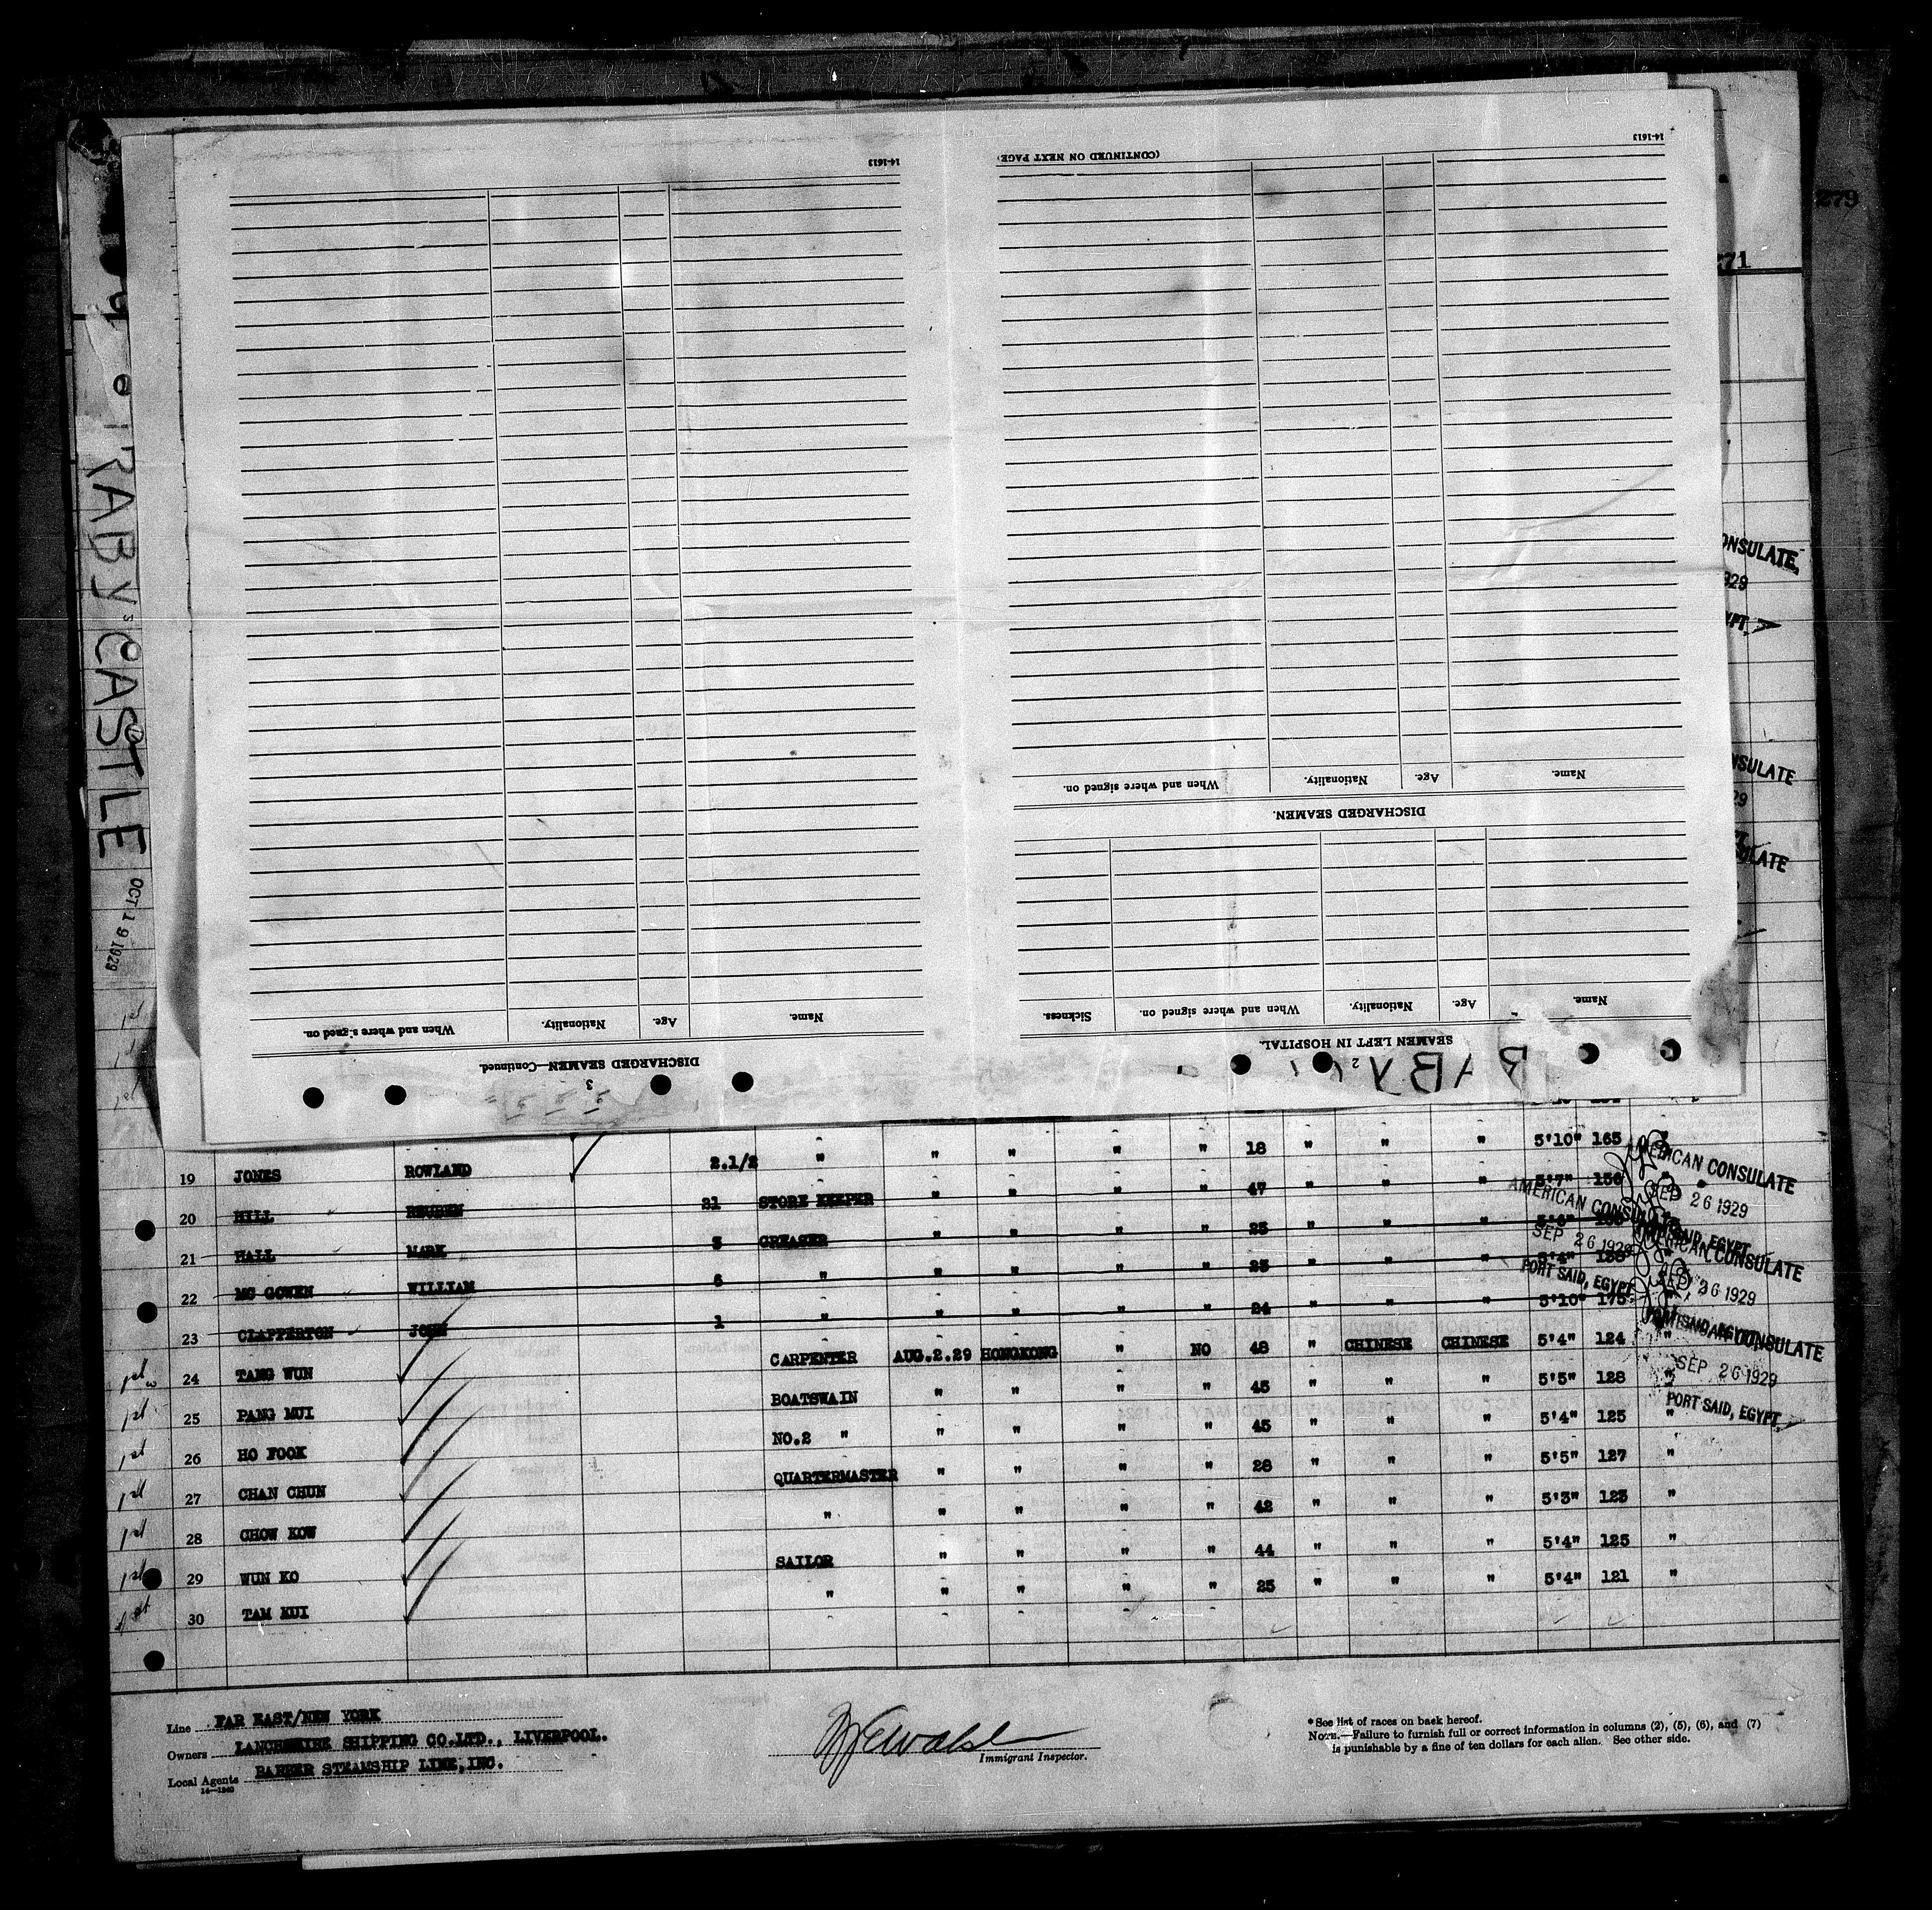 279
271
RABY CASTLE
OCT 19 1929
14-1613
14-1613
(CONTINUED ON NEXT PAGE)
When and where signed on. Nationality. Age. Name.
DISCHARGED SEAMEN.
Sickness. When and where signed on. Nationality. Age. Name.
SEAMEN LEFT IN HOSPITAL.
2
RABY
When and where signed on. Nationality. Age. Name.
DISCHARGED SEAMEN—Continued.
3
ONSULATE,
929
YPT,
NSULATE
29
SULATE
19 JONES ROWLAND 2.1/2 " " " " " 18 " " " 5'10" 165 "
20 HILL REUBEN 21 STORE KEEPER " " " " 47 " " " 5'7" 156
21 HALL MARK 3 GREASER " " " " 25 " " " 5'6"
22 MC GOWEN WILLIAM 6 " " " " " 25 " " " 5'4"
23 CLAPPERTON JOHN 1 " " " " " 24 " " " 5'10" 175
1st 24 TANG WUN CARPENTER AUG.2.29 HONGKONG " NO 48 " CHINESE CHINESE 5'4" 124 "
1st 25 PANG MUI BOATSWAIN " " " " 45 " " " 5'5" 128 "
1st 26 HO FOOK NO.2 " " " " " 45 " " " 5'4" 125 "
1st 27 CHAN CHUN QUARTERMASTER " " " " 28 " " " 5'5" 127 "
1st 28 CHOW KOW " " " " " 42 " " " 5'3" 123 "
1st 29 WUN KO SAILOR " " " " 44 " " " 5'4" 125 "
1st 30 TAM KUI " " " " " 25 " " " 5'4" 121 "
AMERICAN CONSULATE
SEP 26 1929
PORT SAID, EGYPT
AMERICAN CONSULATE
SEP 26 1929
PORT SAID, EGYPT
AMERICAN CONSULATE
SEP 26 1929
PORT SAID, EGYPT
AMERICAN CONSULATE
SEP 26 1929
PORT SAID, EGYPT,
Line FAR EAST/NEW YORK
Owners LANCASHIRE SHIPPING CO.LTD., LIVERPOOL.
Local Agents BARBER STEAMSHIP LINE,INC.
14-1240
Immigrant Inspector.
*See list of races on back hereof.
NOTE.—Failure to furnish full or correct information in columns (2), (5), (6), and (7)
is punishable by a fine of ten dollars for each alien. See other side.